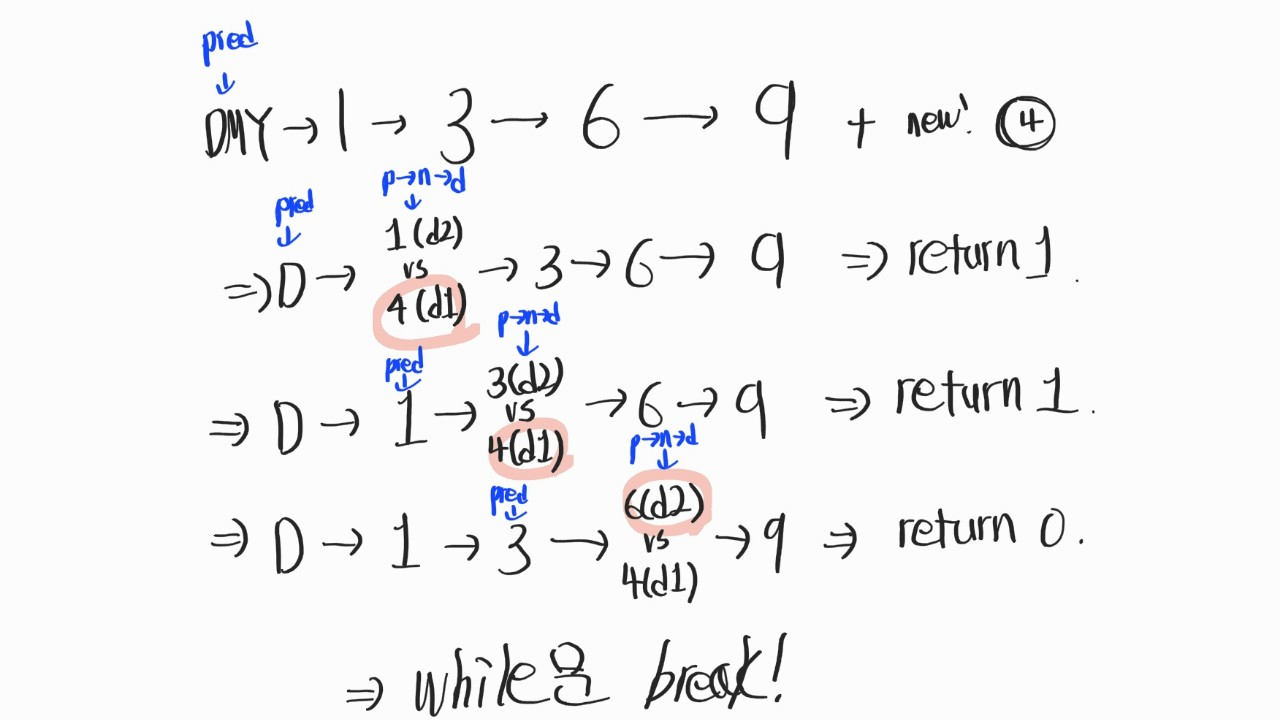 pred
↓
DMY → 1 → 3 → 6 → 9 + new! ④
pred p→n→d
↓ ↓
⇒ D → 1(d2) vs 4(d1) → 3 → 6 → 9 ⇒ return 1.
pred p→n→d
↓ ↓
⇒ D → 1 → 3(d2) vs 4(d1) → 6 → 9 ⇒ return 1.
pred p→n→d
↓ ↓
⇒ D → 1 → 3 → 6(d2) vs 4(d1) → 9 ⇒ return 0.
⇒ while은 break!